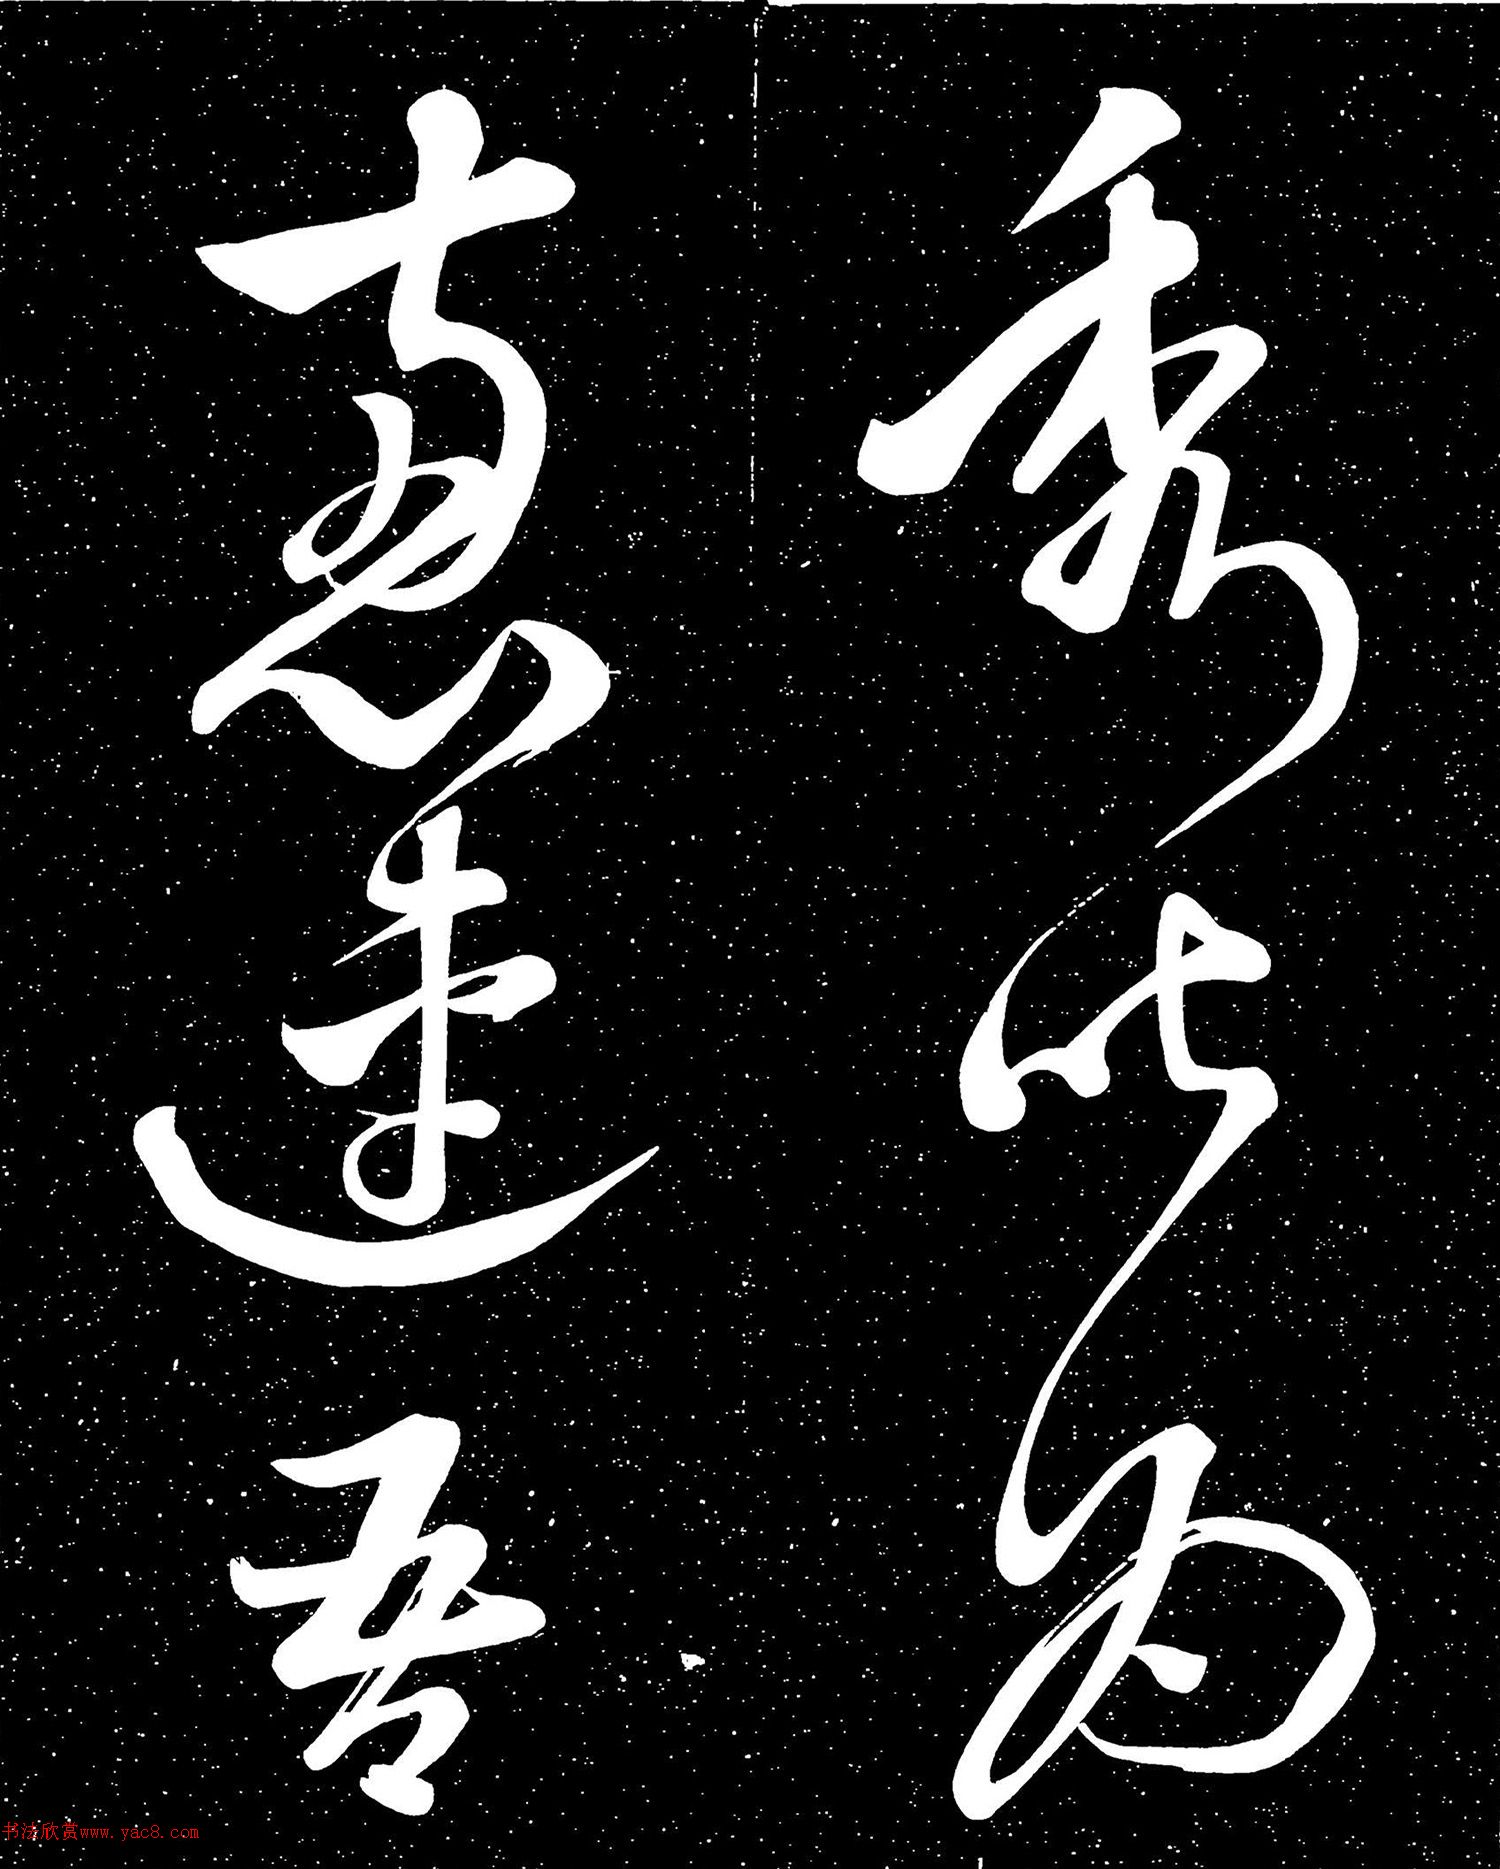 秀皆為
惠連吾
书法欣赏www.yac8.com